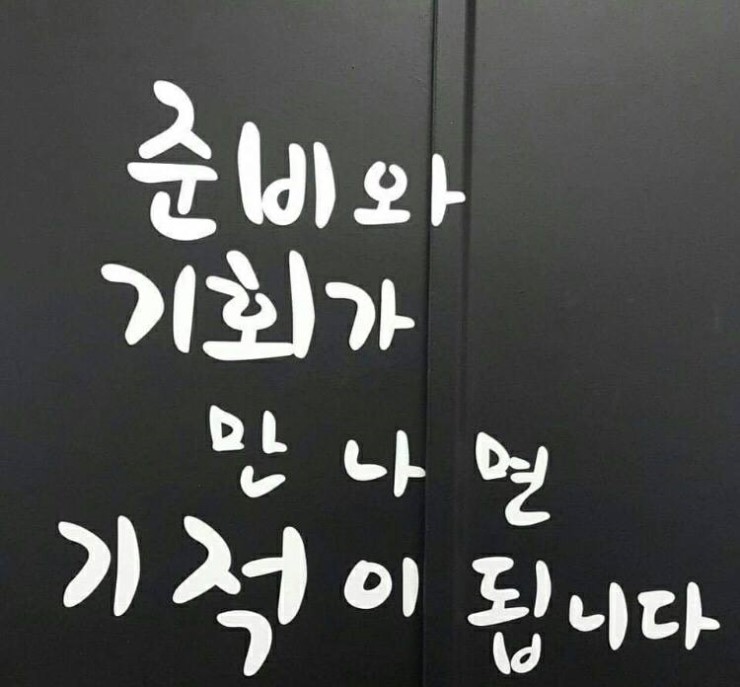 준비와
기회가
만나면
기적이 됩니다